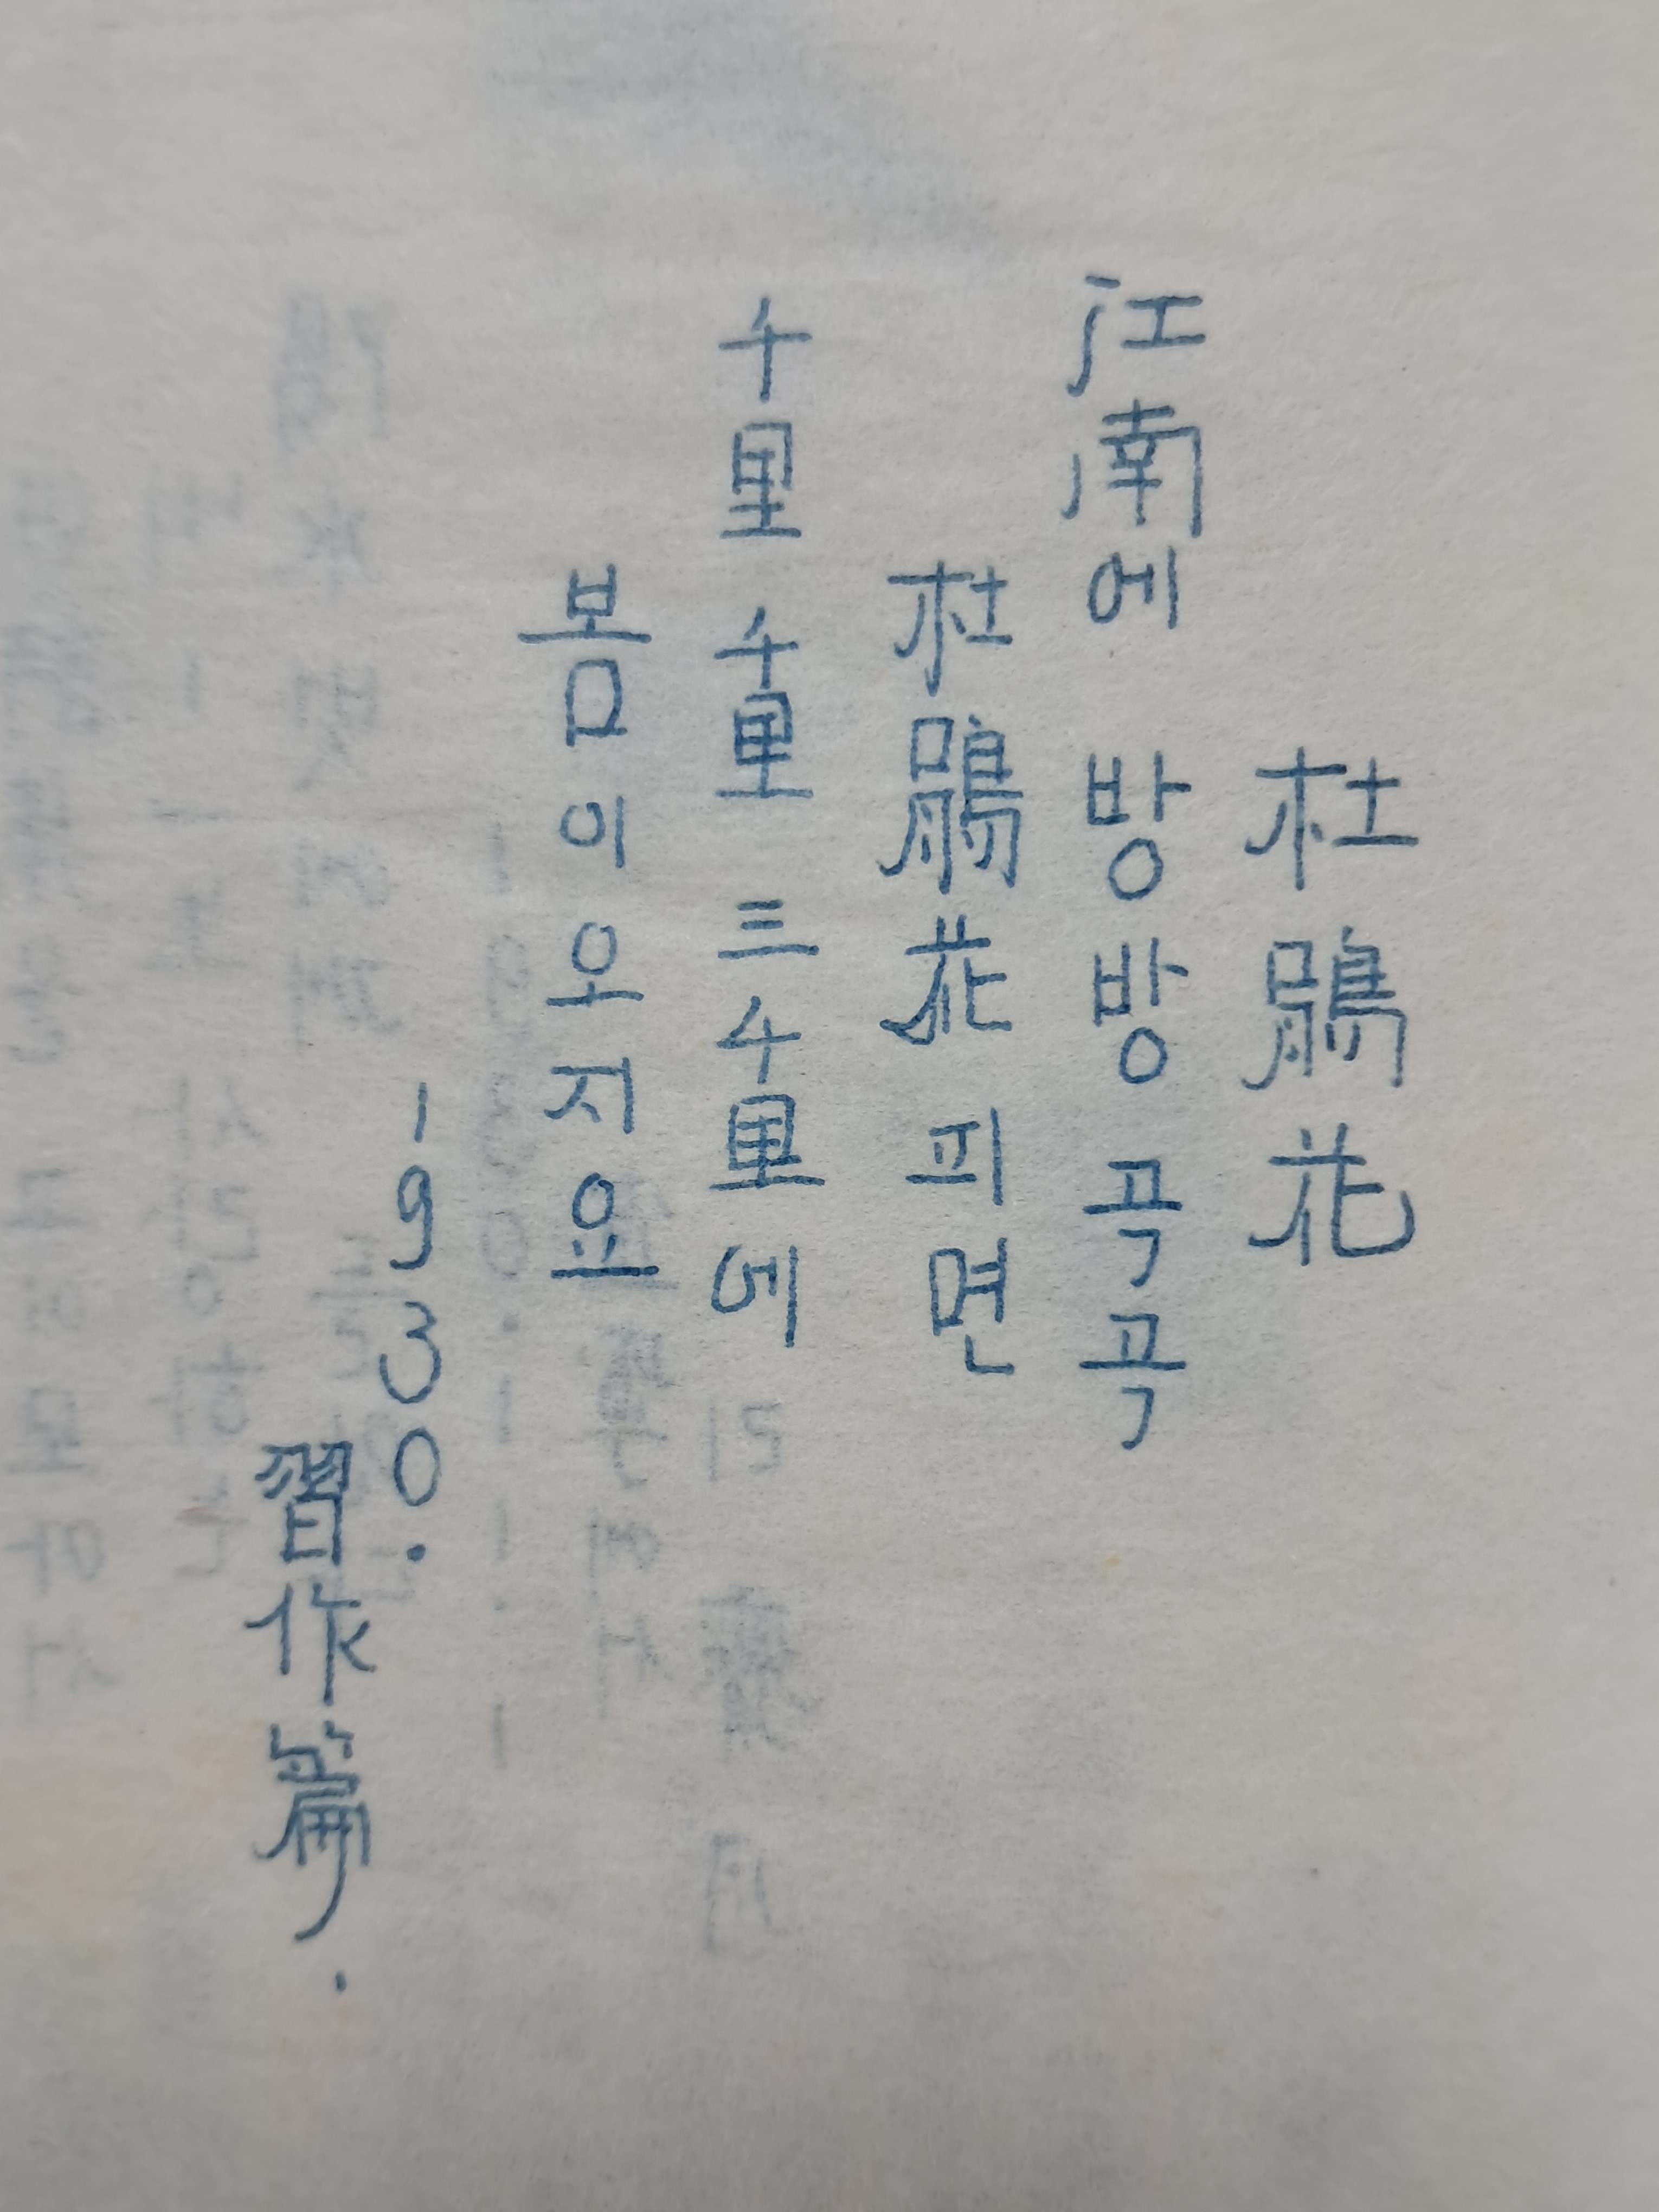 杜鵑花
江南에 방방곡곡
杜鵑花 피면
千里 千里 三千里에
봄이 오지요
1930.
習作篇.